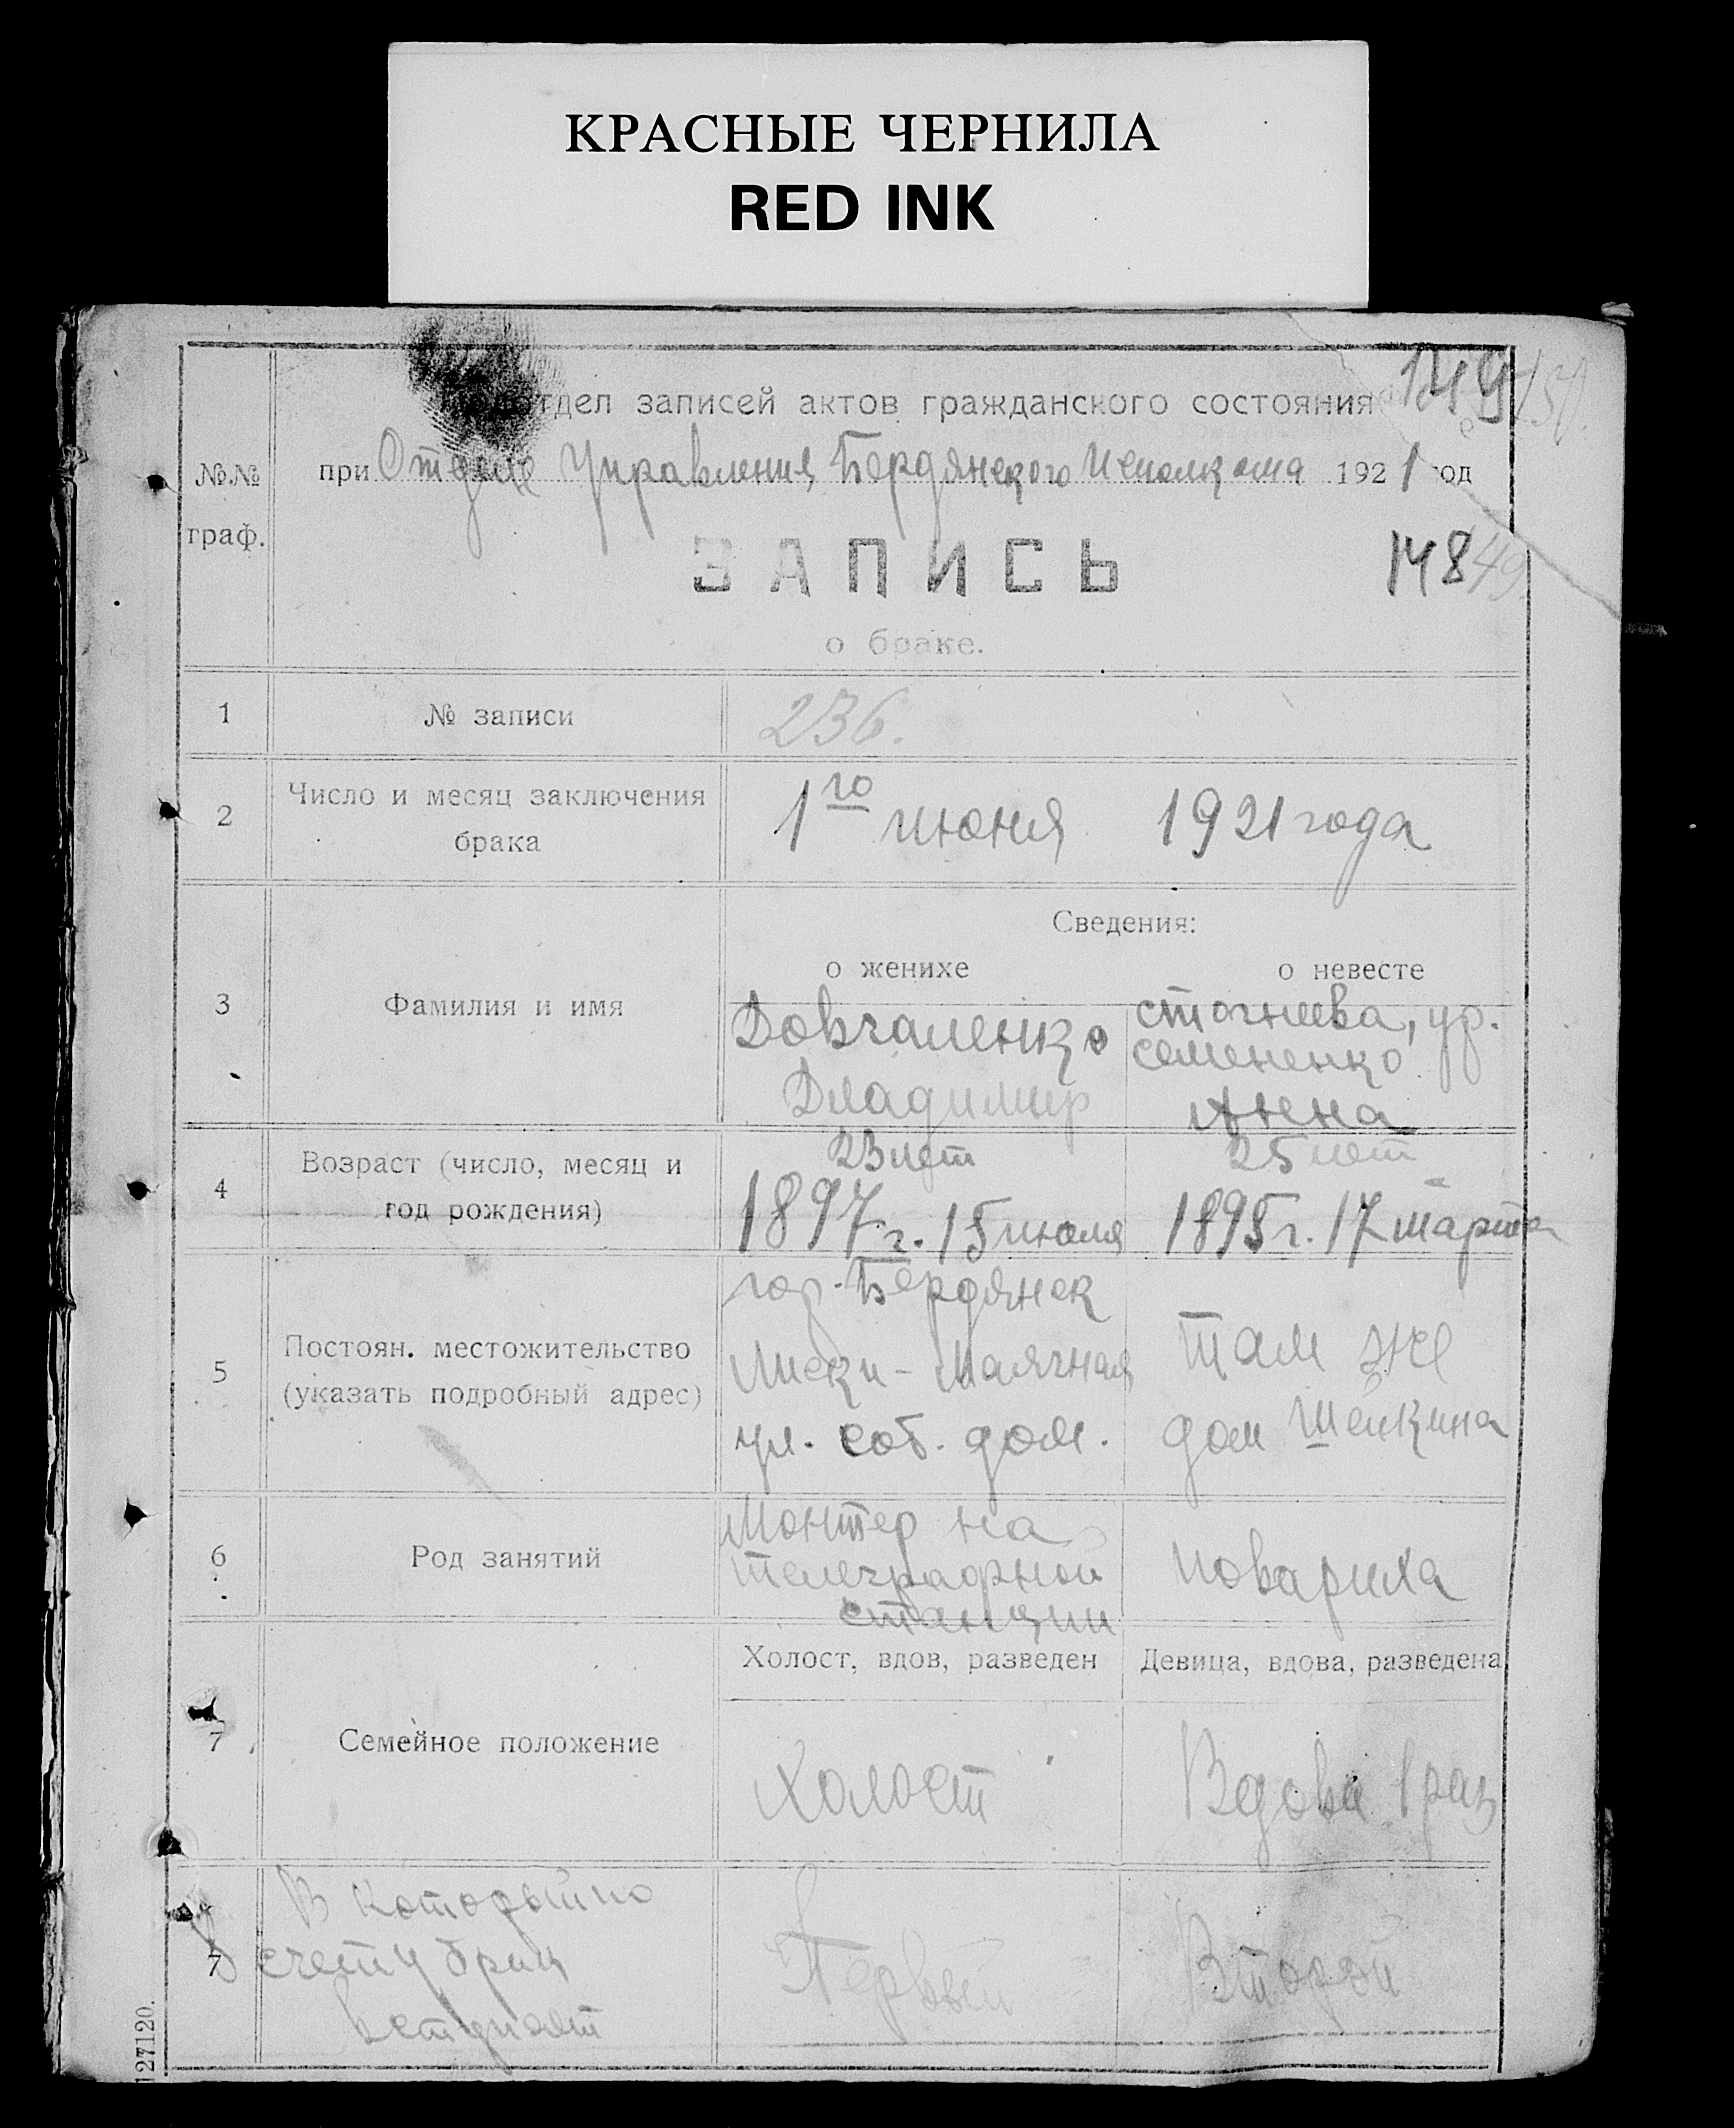 КРАСНЫЕ ЧЕРНИЛА
RED INK
149 151.
тдел записей актов гражданского состояния
№№ граф.
при Отделе Управления Бердянского Исполкома 1921 год
ЗАПИСЬ
148 49.
о браке.
1 № записи 236.
2 Число и месяц заключения брака 1го июня 1921 года
Сведения:
о женихе о невесте
3 Фамилия и имя
Довгаленко
Владимир
ур.
Семененко
Анна
4 Возраст (число, месяц и год рождения)
23 лет 25 лет
1897 г. 15 июля 1895 г. 17 марта
5 Постоян. местожительство
(указать подробный адрес)
гор. Бердянск
Лиски - Маячная
ул. соб. дом.
Там же
дом
6 Род занятий
Монтер на
телеграфной
станции
повариха
Холост, вдов, разведен Девица, вдова, разведена
7 Семейное положение
Холост Вдова 1 раз
7 В который по
счету брак
вступает
Первый Второй
127120.